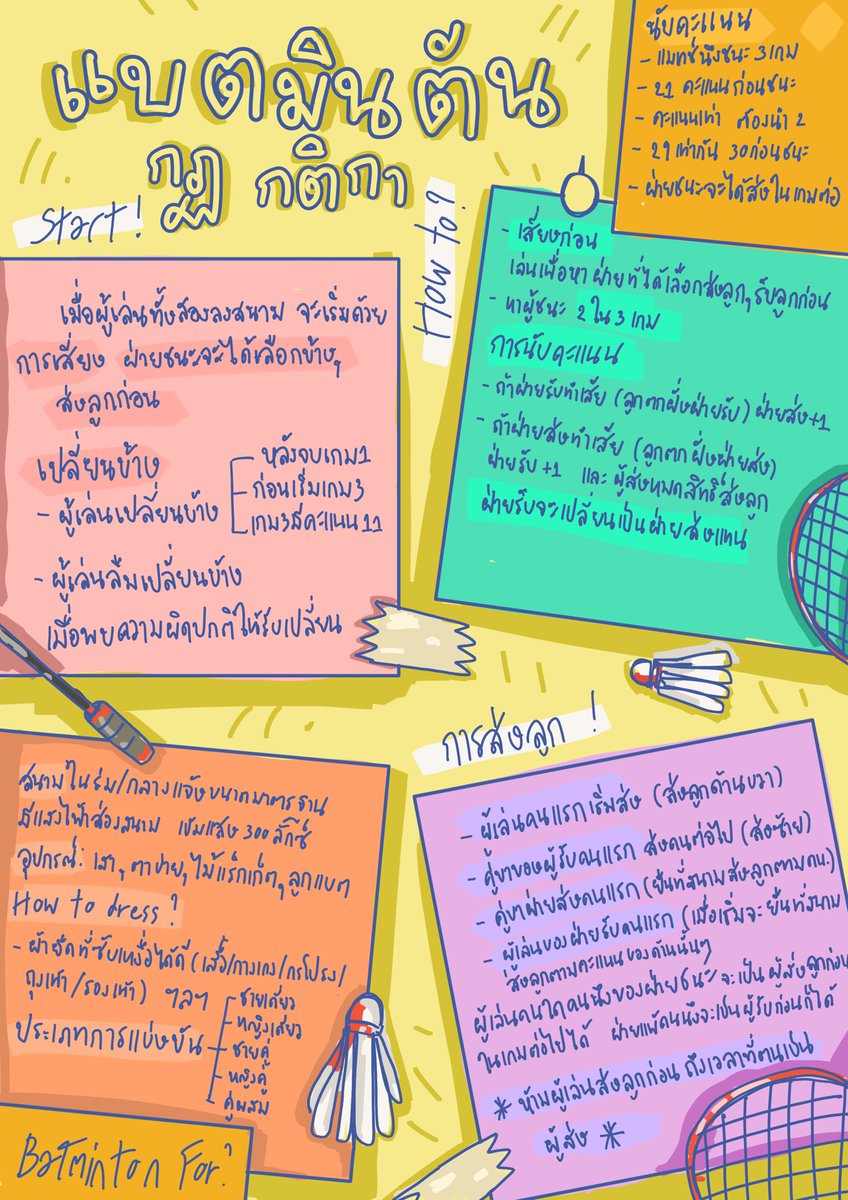 แบดมินตัน
กฎ กติกา
นับคะแนน
- แมทช์นึงชนะ 3 เกม
- 21 คะแนนก่อนชนะ
- คะแนนเท่า ต้องนำ 2
- 29 เท่ากัน 30 ก่อนชนะ
- ฝ่ายชนะจะได้ส่งในเกมต่อ
Start!
เมื่อผู้เล่นทั้งสองลงสนาม จะเริ่มด้วย
การเสี่ยง ฝ่ายชนะจะได้เลือกข้าง,
ส่งลูกก่อน
เปลี่ยนข้าง
- ผู้เล่นเปลี่ยนข้าง
หลังจบเกม 1
ก่อนเริ่มเกม 3
เกม 3 มีคะแนน 11
- ผู้เล่นลืมเปลี่ยนข้าง
เมื่อพบความผิดปกติให้รีบเปลี่ยน
How to?
- เสี่ยงก่อน
เล่นเพื่อหาฝ่ายที่ได้เลือกส่งลูก, รับลูกก่อน
- หาผู้ชนะ 2 ใน 3 เกม
การนับคะแนน
- ถ้าฝ่ายรับทำเสีย (ลูกตกฝั่งฝ่ายรับ) ฝ่ายส่ง +1
- ถ้าฝ่ายส่งทำเสีย (ลูกตกฝั่งฝ่ายส่ง)
ฝ่ายรับ +1 และ ผู้ส่งหมดสิทธิ์ส่งลูก
ฝ่ายรับจะเปลี่ยนเป็นฝ่ายส่งแทน
สนามในร่ม/กลางแจ้งขนาดมาตรฐาน
มีแสงไฟส่องสนาม เข้มแสง 300 ลักซ์
อุปกรณ์: เสา, ตาข่าย, ไม้แร็กเก็ต, ลูกแบต
How to dress?
- ผ้ายืดที่ซับเหงื่อได้ดี (เสื้อ/กางเกง/กรโปรง/
ถุงเท้า/รองเท้า) ฯลฯ
ประเภทการแข่งขัน
- ชายเดี่ยว
- หญิงเดี่ยว
- ชายคู่
- หญิงคู่
- คู่ผสม
Batminton For?
การส่งลูก!
- ผู้เล่นคนแรกเริ่มส่ง (ส่งลูกด้านขวา)
- คู่ขาของผู้รับคนแรก ส่งคนต่อไป (ส่งซ้าย)
- คู่ขาฝ่ายส่งคนแรก (ยืนที่สนามส่งลูกตามคน.)
- ผู้เล่นของฝ่ายรับคนแรก (เมื่อเริ่มจะยืนที่สนาม
ส่งลูกตามคะแนนของด้านนั้นๆ
ผู้เล่นคนใดคนนึงของฝ่ายชนะ จะเป็น ผู้ส่งลูกก่อน
ในเกมต่อไปได้ ฝ่ายแพ้คนนึงจะเป็นผู้รับก่อนก็ได้
* ห้ามผู้เล่นส่งลูกก่อน ถึงเวลาที่ตนเป็น
ผู้ส่ง *